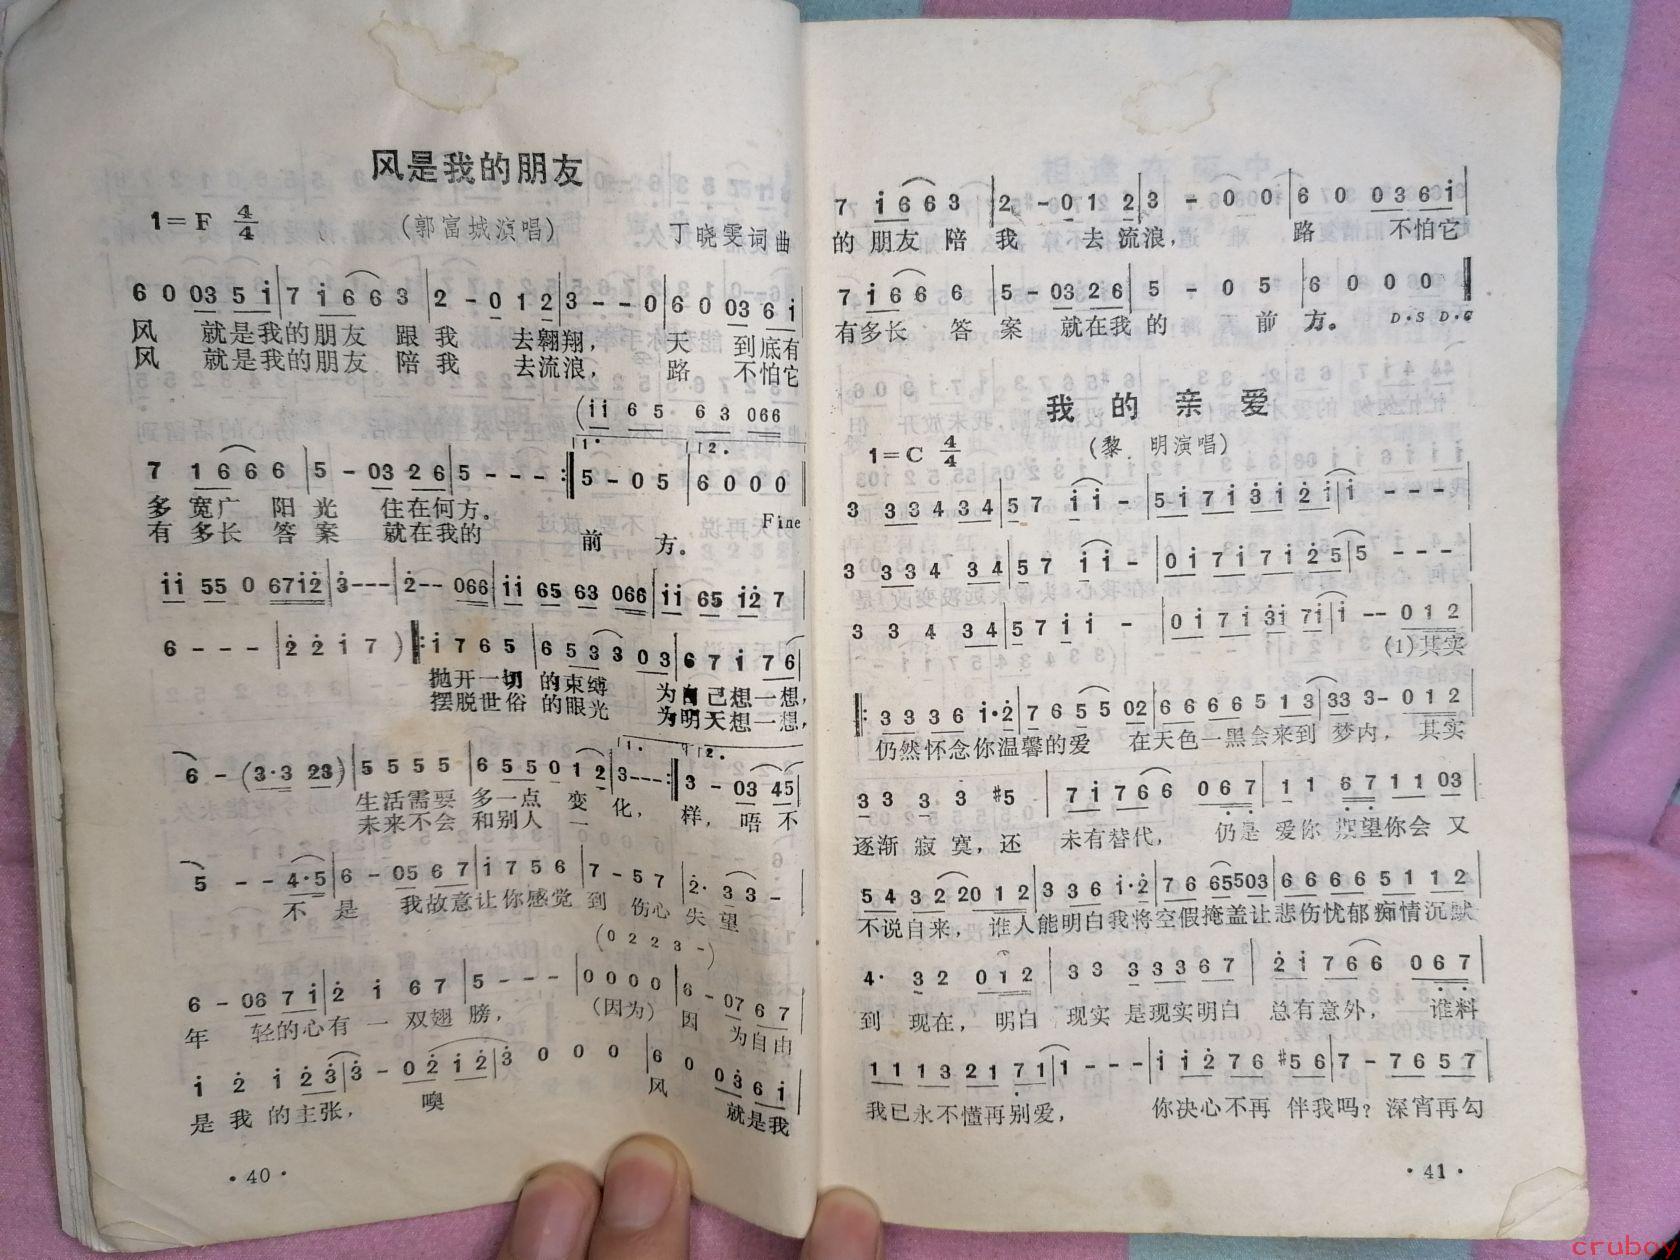 风是我的朋友
1=F 4/4 (郭富城演唱) 丁晓雯词曲
6 0 03 5 i | 7 i 6 6 3 | 2 - 0 1 2 | 3 - - 0 | 6 0 03 6 i |
风 就是我的朋友 跟我 去翱翔, 天 到底有
风 就是我的朋友 陪我 去流浪, 路 不怕它
(i i 6 5 6 3 066
1. 2.
7 1 6 6 6 | 5 - 03 2 6 | 5 - - - :| 5 - 0 5 | 6 0 0 0 |
Fine
多宽广 阳光 住在何方。
有多长 答案 就在我的 前方。
i i 55 0 67i2 | 3 - - - | 2 - - 066 | i i 65 63 066 | i i 65 i2 7
6 - - - | 2 2 i 7 ) |: i 7 6 5 | 6 5 3 3 0 3 | 6 7 i 7 6 |
抛开一切 的束缚 为自己想一想,
摆脱世俗 的眼光 为明天想一想,
1. 2.
6 - (3·3 23) | 5 5 5 5 | 6 5 5 0 1 2 | 3 - - - :| 3 - 03 45 |
生活需要 多一点 变化, 样, 唔不
未来不会 和别人 一
5 - - 4·5 | 6 - 05 6 7 | i 7 5 6 | 7 - 5 7 | 2· 3 3 - |
不是 我故意让你感觉到 伤心失望
(0 2 2 3 -)
6 - 06 7 i | 2 i 6 7 | 5 - - - | 0 0 0 0 | 6 - 07 6 7 |
年 轻的心有一双翅膀, (因为) 因 为自由
i 2 i 2 3 | 3 - 0 2 i 2 | 3 0 0 0 | 6 0 03 6 i |
是我的主张, 噢 风 就是我
·40·
7 i 6 6 3 | 2 - 0 1 2 | 3 - 0 0 | 6 0 0 3 6 i |
的朋友陪我 去流浪, 路 不怕它
7 i 6 6 6 | 5 - 03 2 6 | 5 - 0 5 | 6 0 0 0 ‖
有多长 答案 就在我的 前方。 D·S D·C
我的亲爱
1=C 4/4 (黎 明演唱)
3 3 3 4 3 4 | 5 7 i i - | 5 i 7 i 3 i 2 i | i - - - |
3 3 3 4 3 4 | 5 7 i i - | 0 i 7 i 7 i 2 5 | 5 - - - |
3 3 4 3 4 | 5 7 i i - | 0 i 7 i 3i 7i | i - - 0 1 2 |
(1)其实
|: 3 3 3 6 i·2 | 7 6 5 5 02 | 6 6 6 6 5 1 3 | 33 3 - 0 1 2 |
仍然怀念你温馨的爱 在天色一黑会来到梦内, 其实
3 3 3 3 #5 | 7 i 7 6 6 0 6 7 | 1 1 6 7 1 1 03 |
逐渐寂寞,还 未有替代, 仍是爱你 摆望你会又
5 4 3 2 20 1 2 | 3 3 6 i·2 | 7 6 65 503 | 6 6 6 6 5 1 1 2 |
不说自来, 谁人能明白我将空假掩盖让悲伤忧郁痴情沉默
4· 3 2 0 1 2 | 3 3 3 3 3 6 7 | 2 i 7 6 6 0 6 7 |
到现在, 明白现实是现实明白 总有意外, 谁料
1 1 1 3 2 1 7 1 | 1 - - - | i i 2 7 6 #5 6 | 7 - 7 6 5 7 |
我已永不懂再别爱, 你决心不再伴我吗?深宵再勾
·41·
cruboy